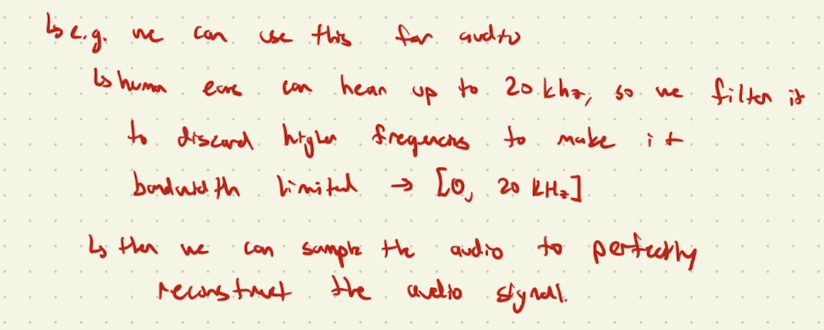 ↳ e.g. we can use this for audio
↳ human ears can hear up to 20 khz, so we filter it
to discard higher frequencies to make it
bandwidth limited → [0, 20 KHz]
↳ then we can sample the audio to perfectly
reconstruct the audio signal.